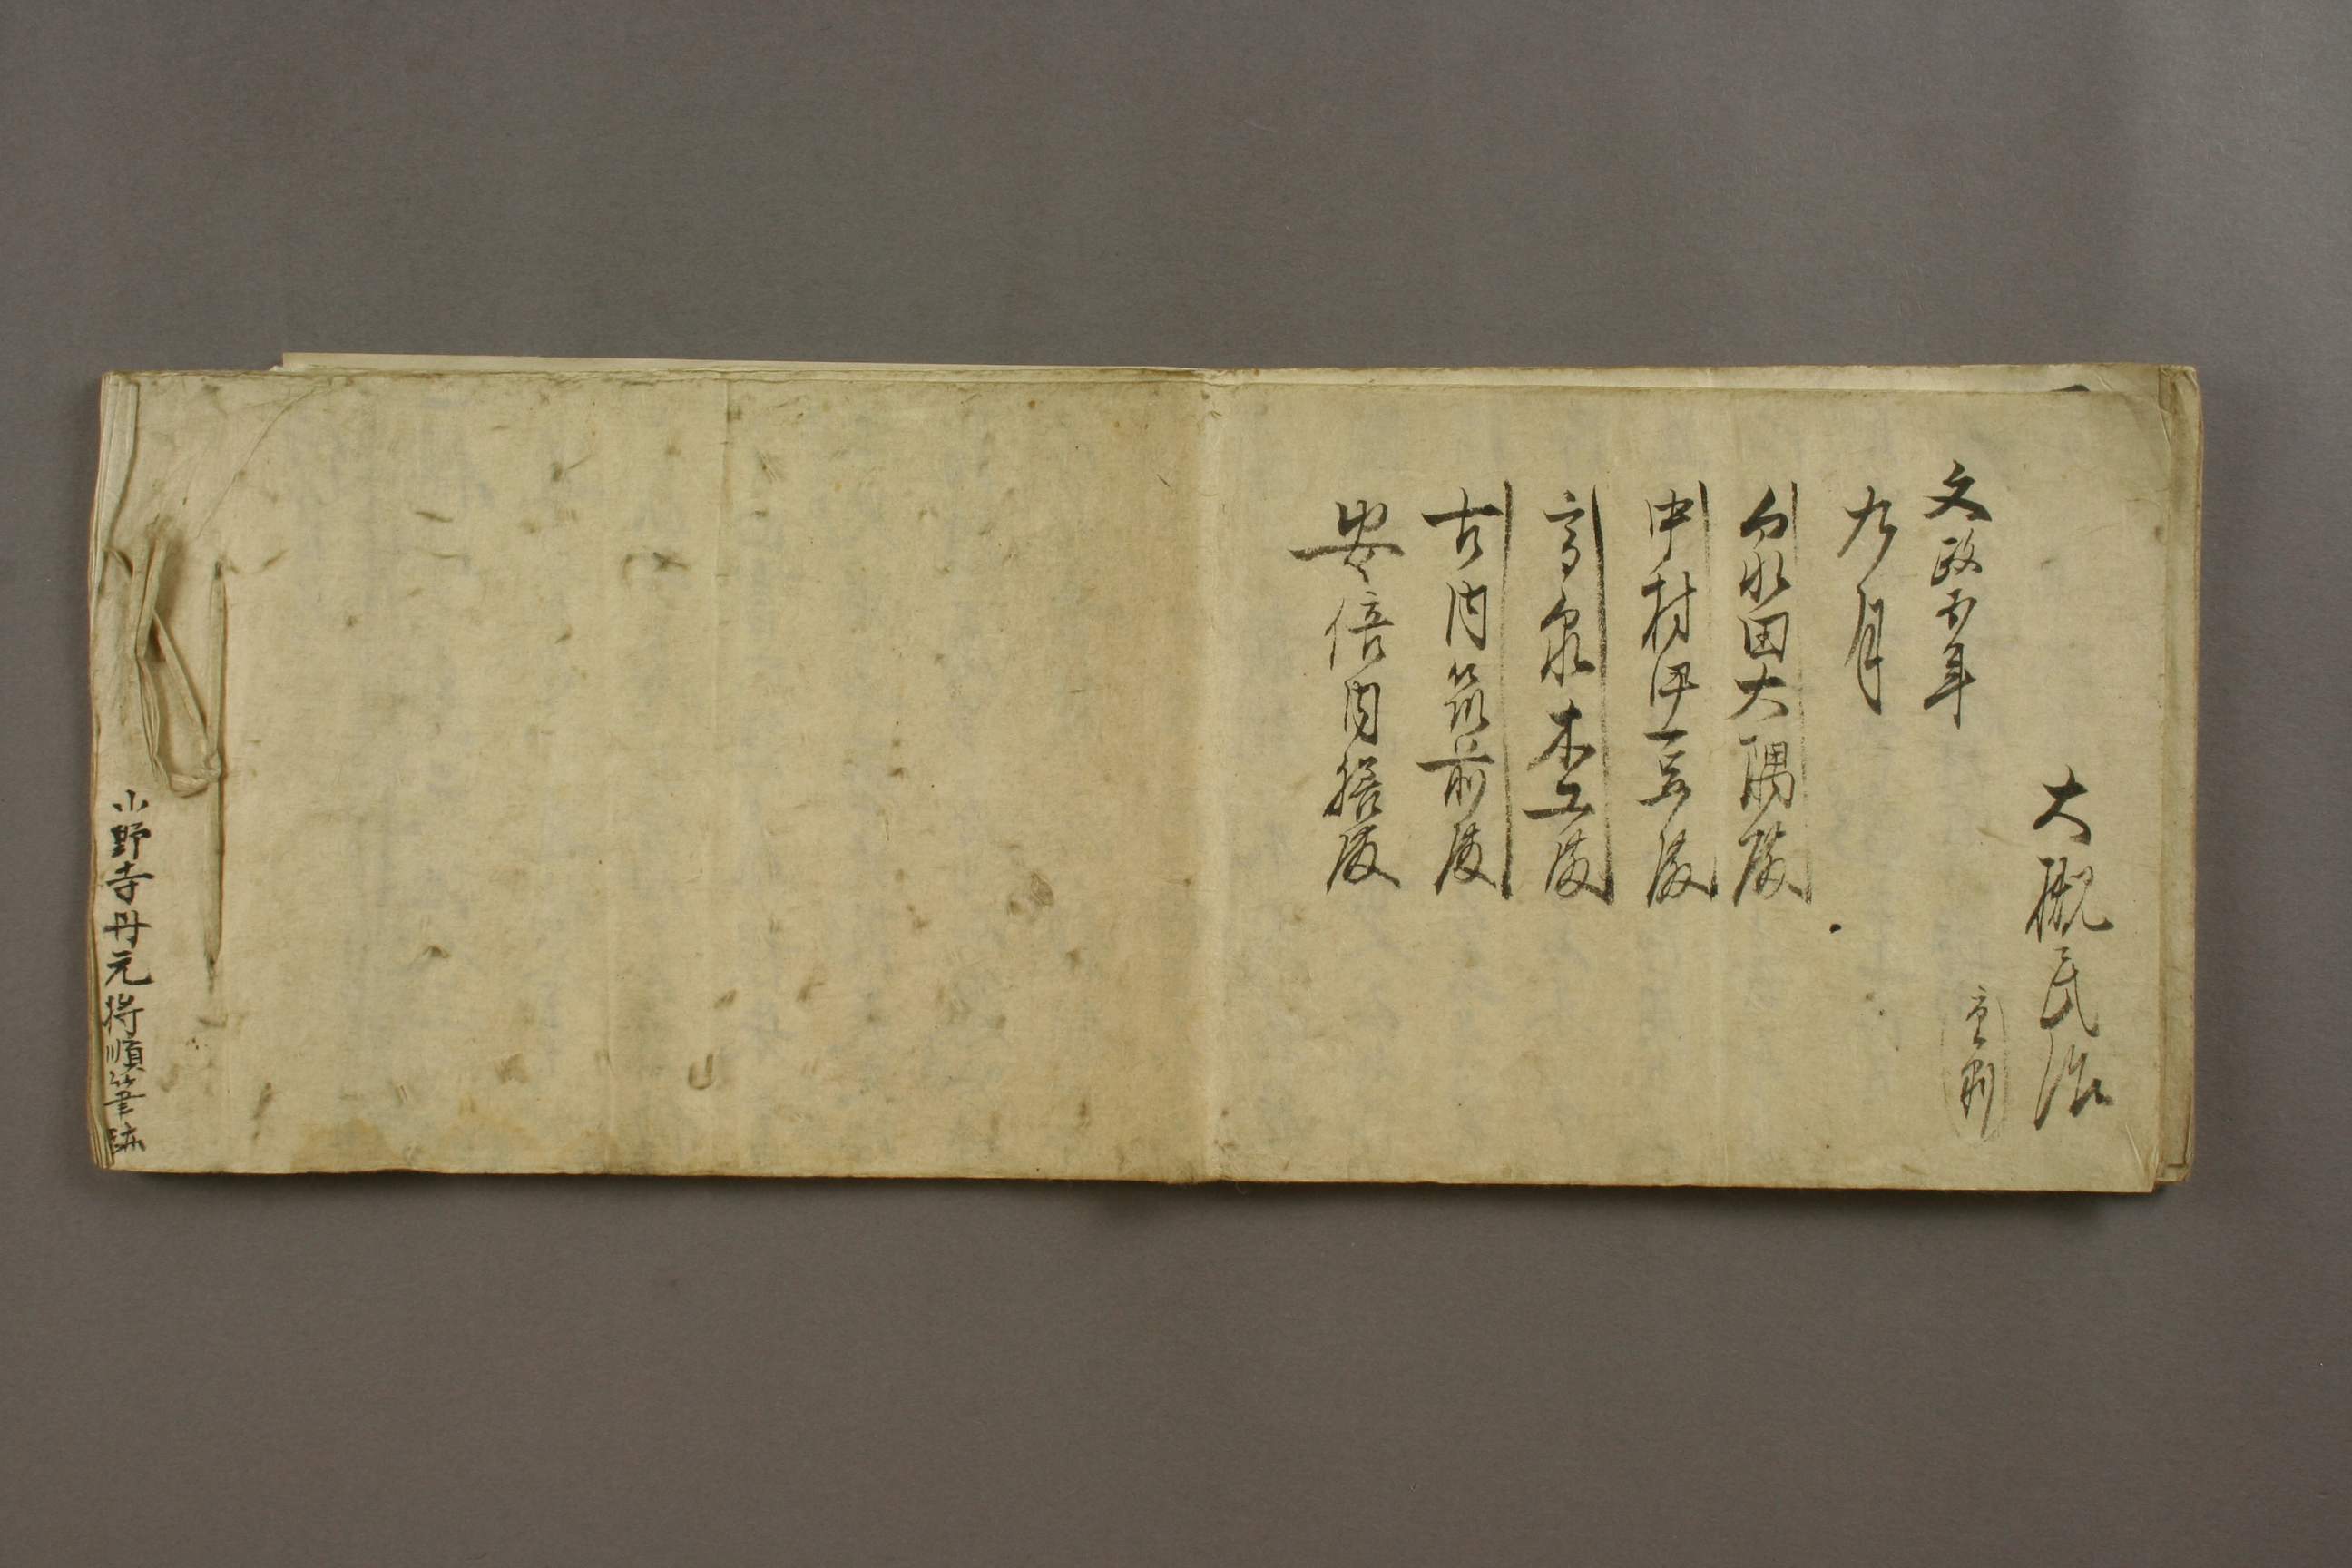 大槻民治
文政五年
九月
泉田大隅殿
中村伊豆殿
高泉木工殿
古内筑前殿
安倍内膳殿
小野寺丹元将順筆跡